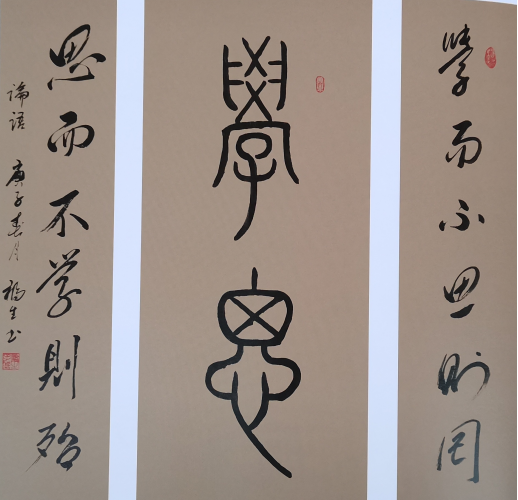 學而不思則罔
學思
思而不学則殆
論語 庚子春月 福生书